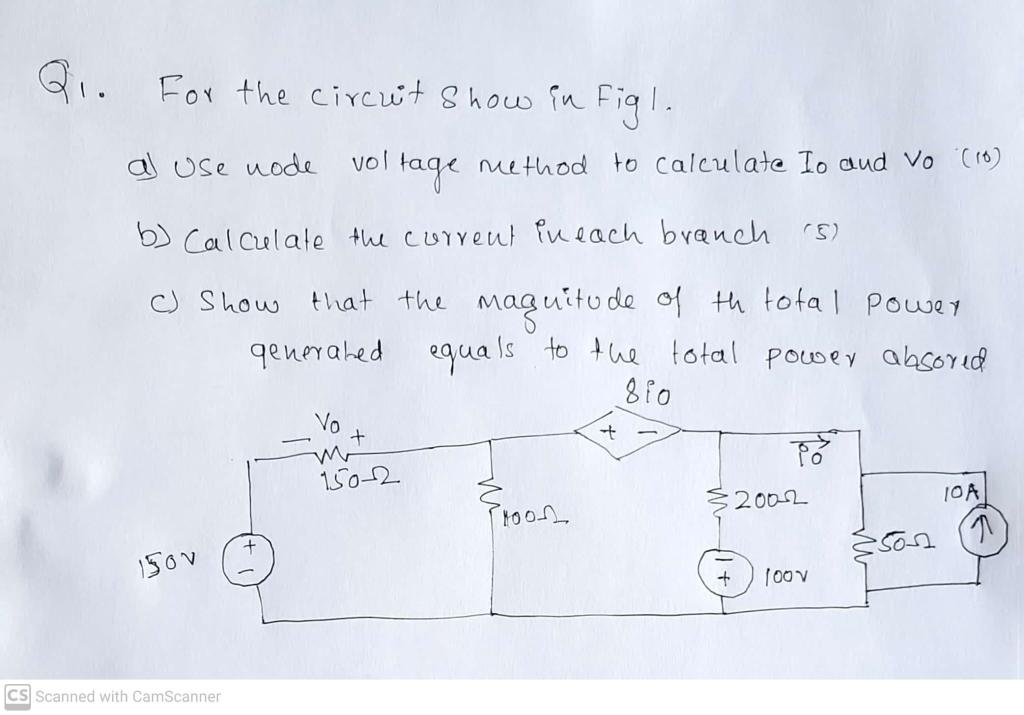 Q1. For the circuit show in Fig 1.
a) Use node voltage method to calculate Io and Vo (10)
b) Calculate the current in each branch (5)
c) Show that the magnitude of th total power
generated equals to the total power absored
8io
Vo
− +
150Ω
+ −
io
100Ω
200Ω
10A
50Ω
150V
+
−
−
+
100V
CS Scanned with CamScanner